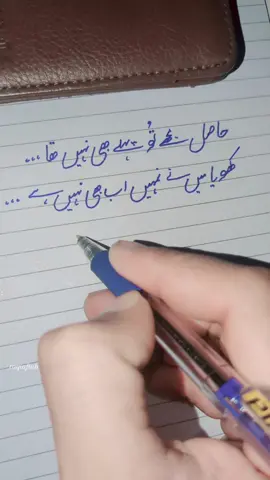 حاصل مجھے تُو پہلے بھی نہیں تھا ...
کھویا میں نے تمہیں اب بھی نہیں ہے ...